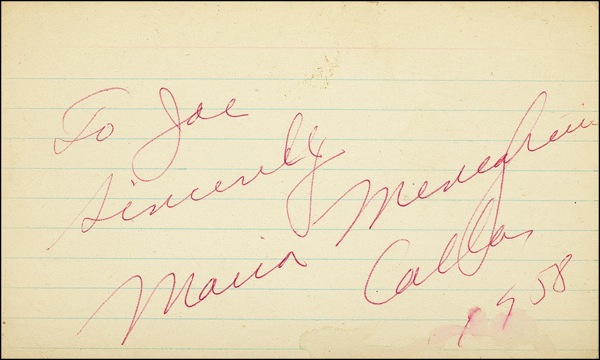 To Joe
Sincerely
Maria Meneghini
Callas
1958